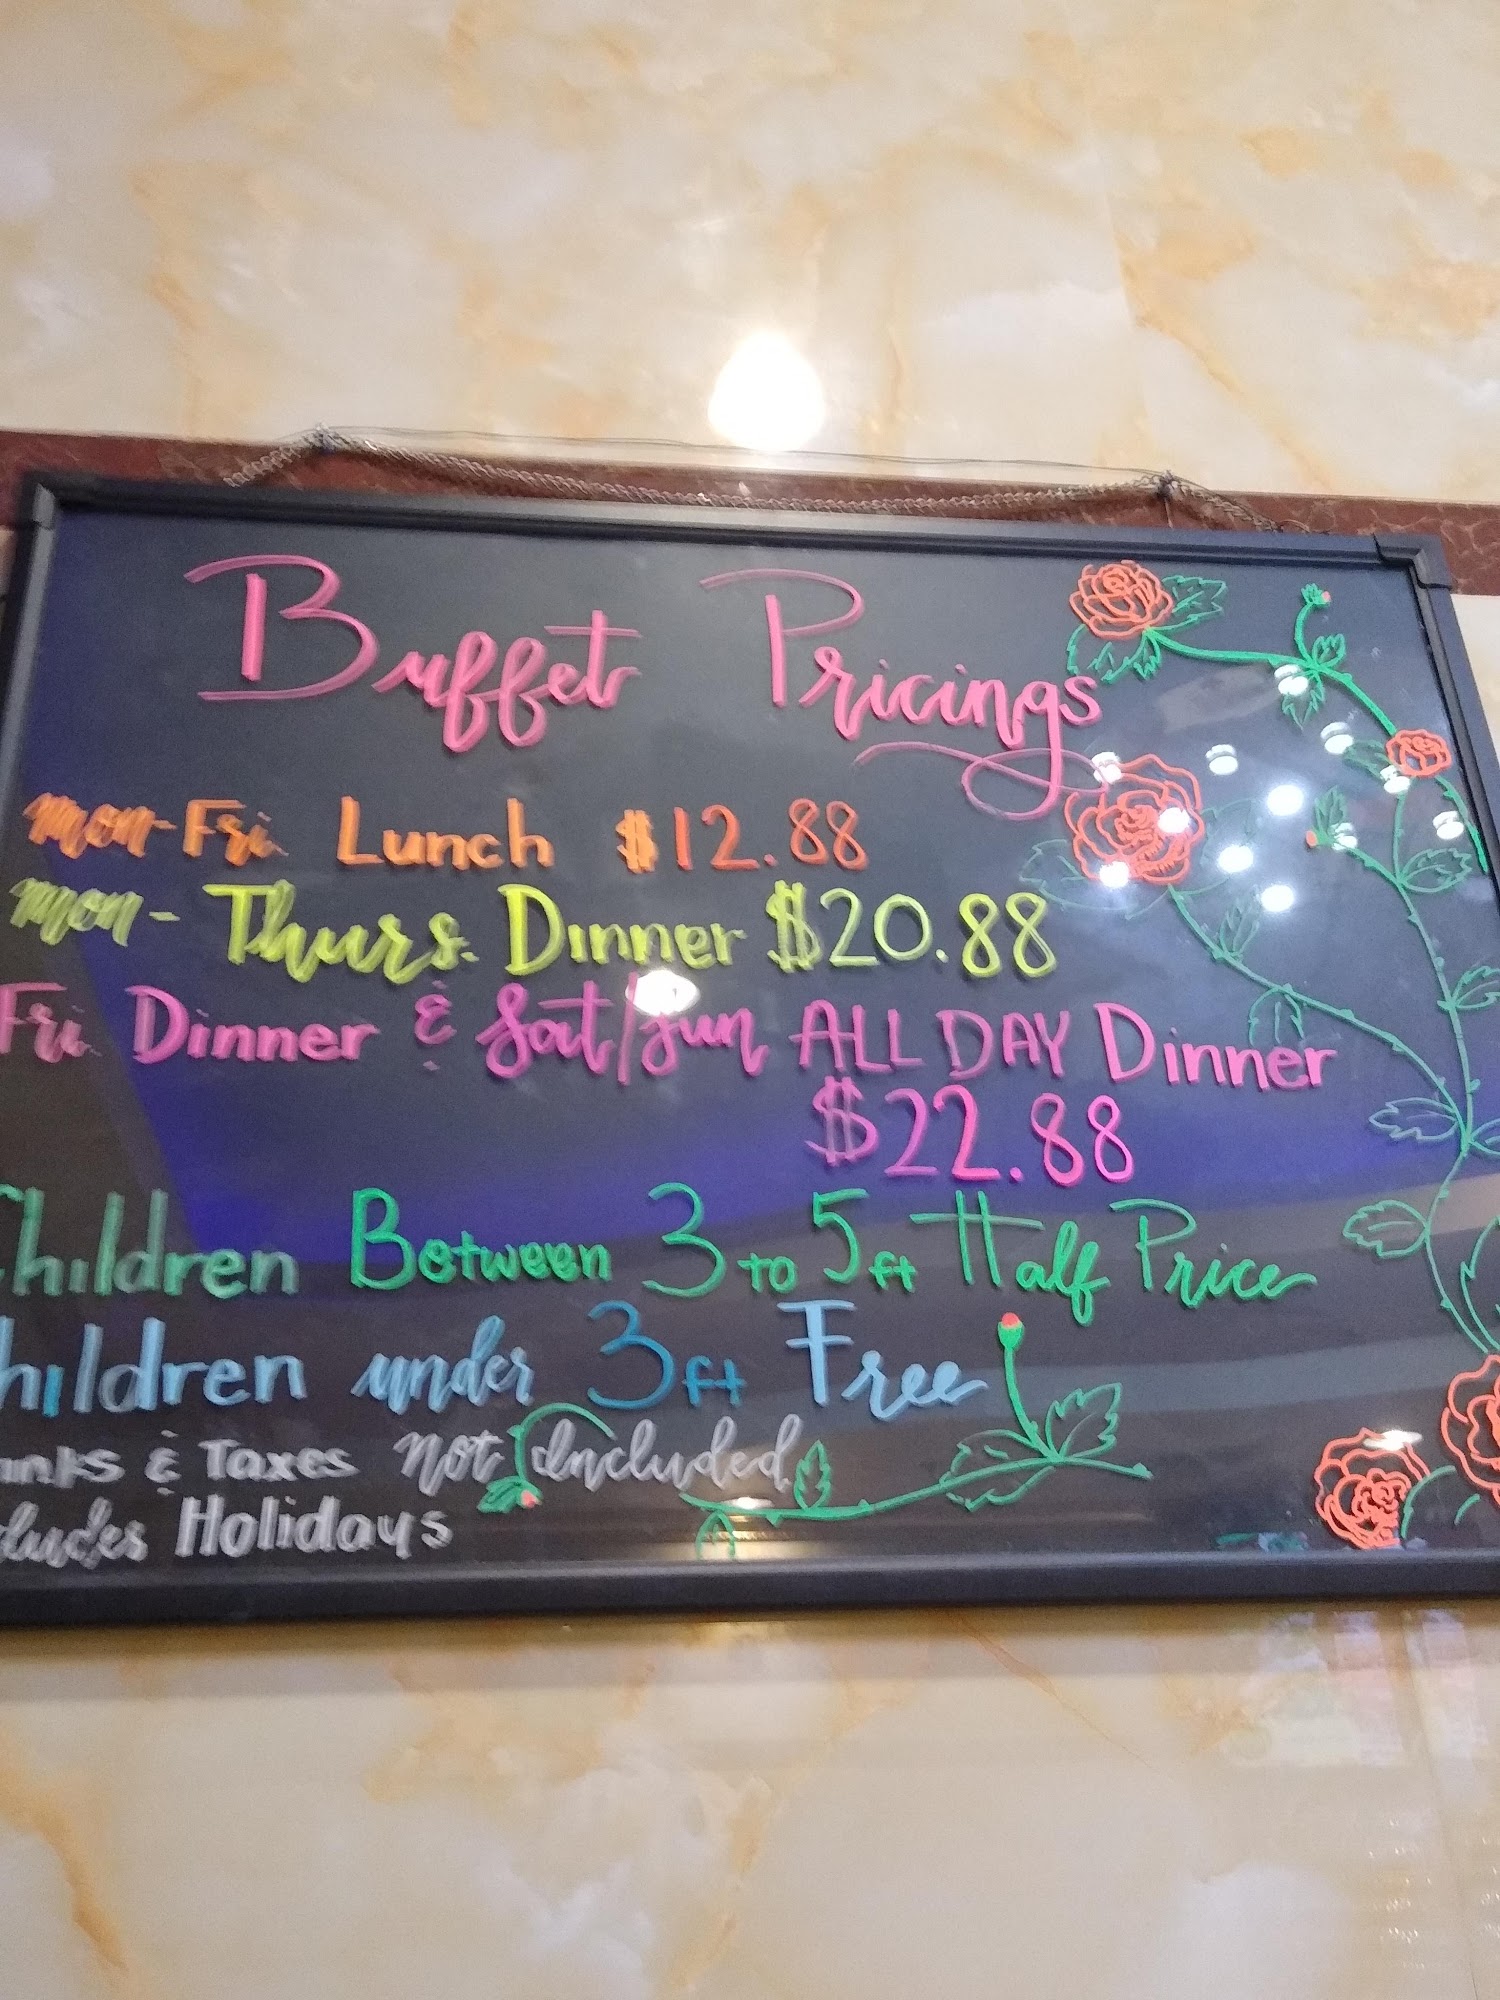 Buffet Pricings
Mon-Fri Lunch $12.88
Mon-Thurs. Dinner $20.88
Fri Dinner & Sat/Sun ALL DAY Dinner
$22.88
Children Between 3 to 5ft Half Price
Children under 3ft Free
& Taxes Not Included
Holidays